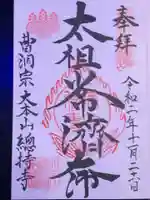 奉拝
令和二年十一月二六日
太祖常濟大師
曹洞宗大本山總持寺